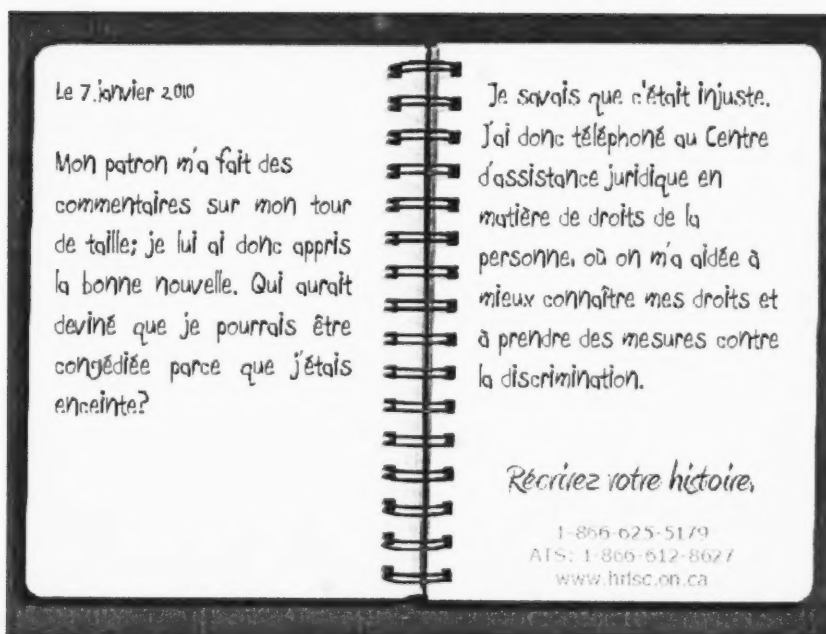 Le 7 janvier 2010
Mon patron m'a fait des
commentaires sur mon tour
de taille; je lui ai donc appris
la bonne nouvelle. Qui aurait
deviné que je pourrais être
congédiée parce que j'étais
enceinte?
Je savais que c'était injuste.
J'ai donc téléphoné au Centre
d'assistance juridique en
matière de droits de la
personne, où on m'a aidée à
mieux connaître mes droits et
à prendre des mesures contre
la discrimination.
Récrivez votre histoire.
1-866-625-5179
ATS: 1-866-612-8627
www.hrlsc.on.ca